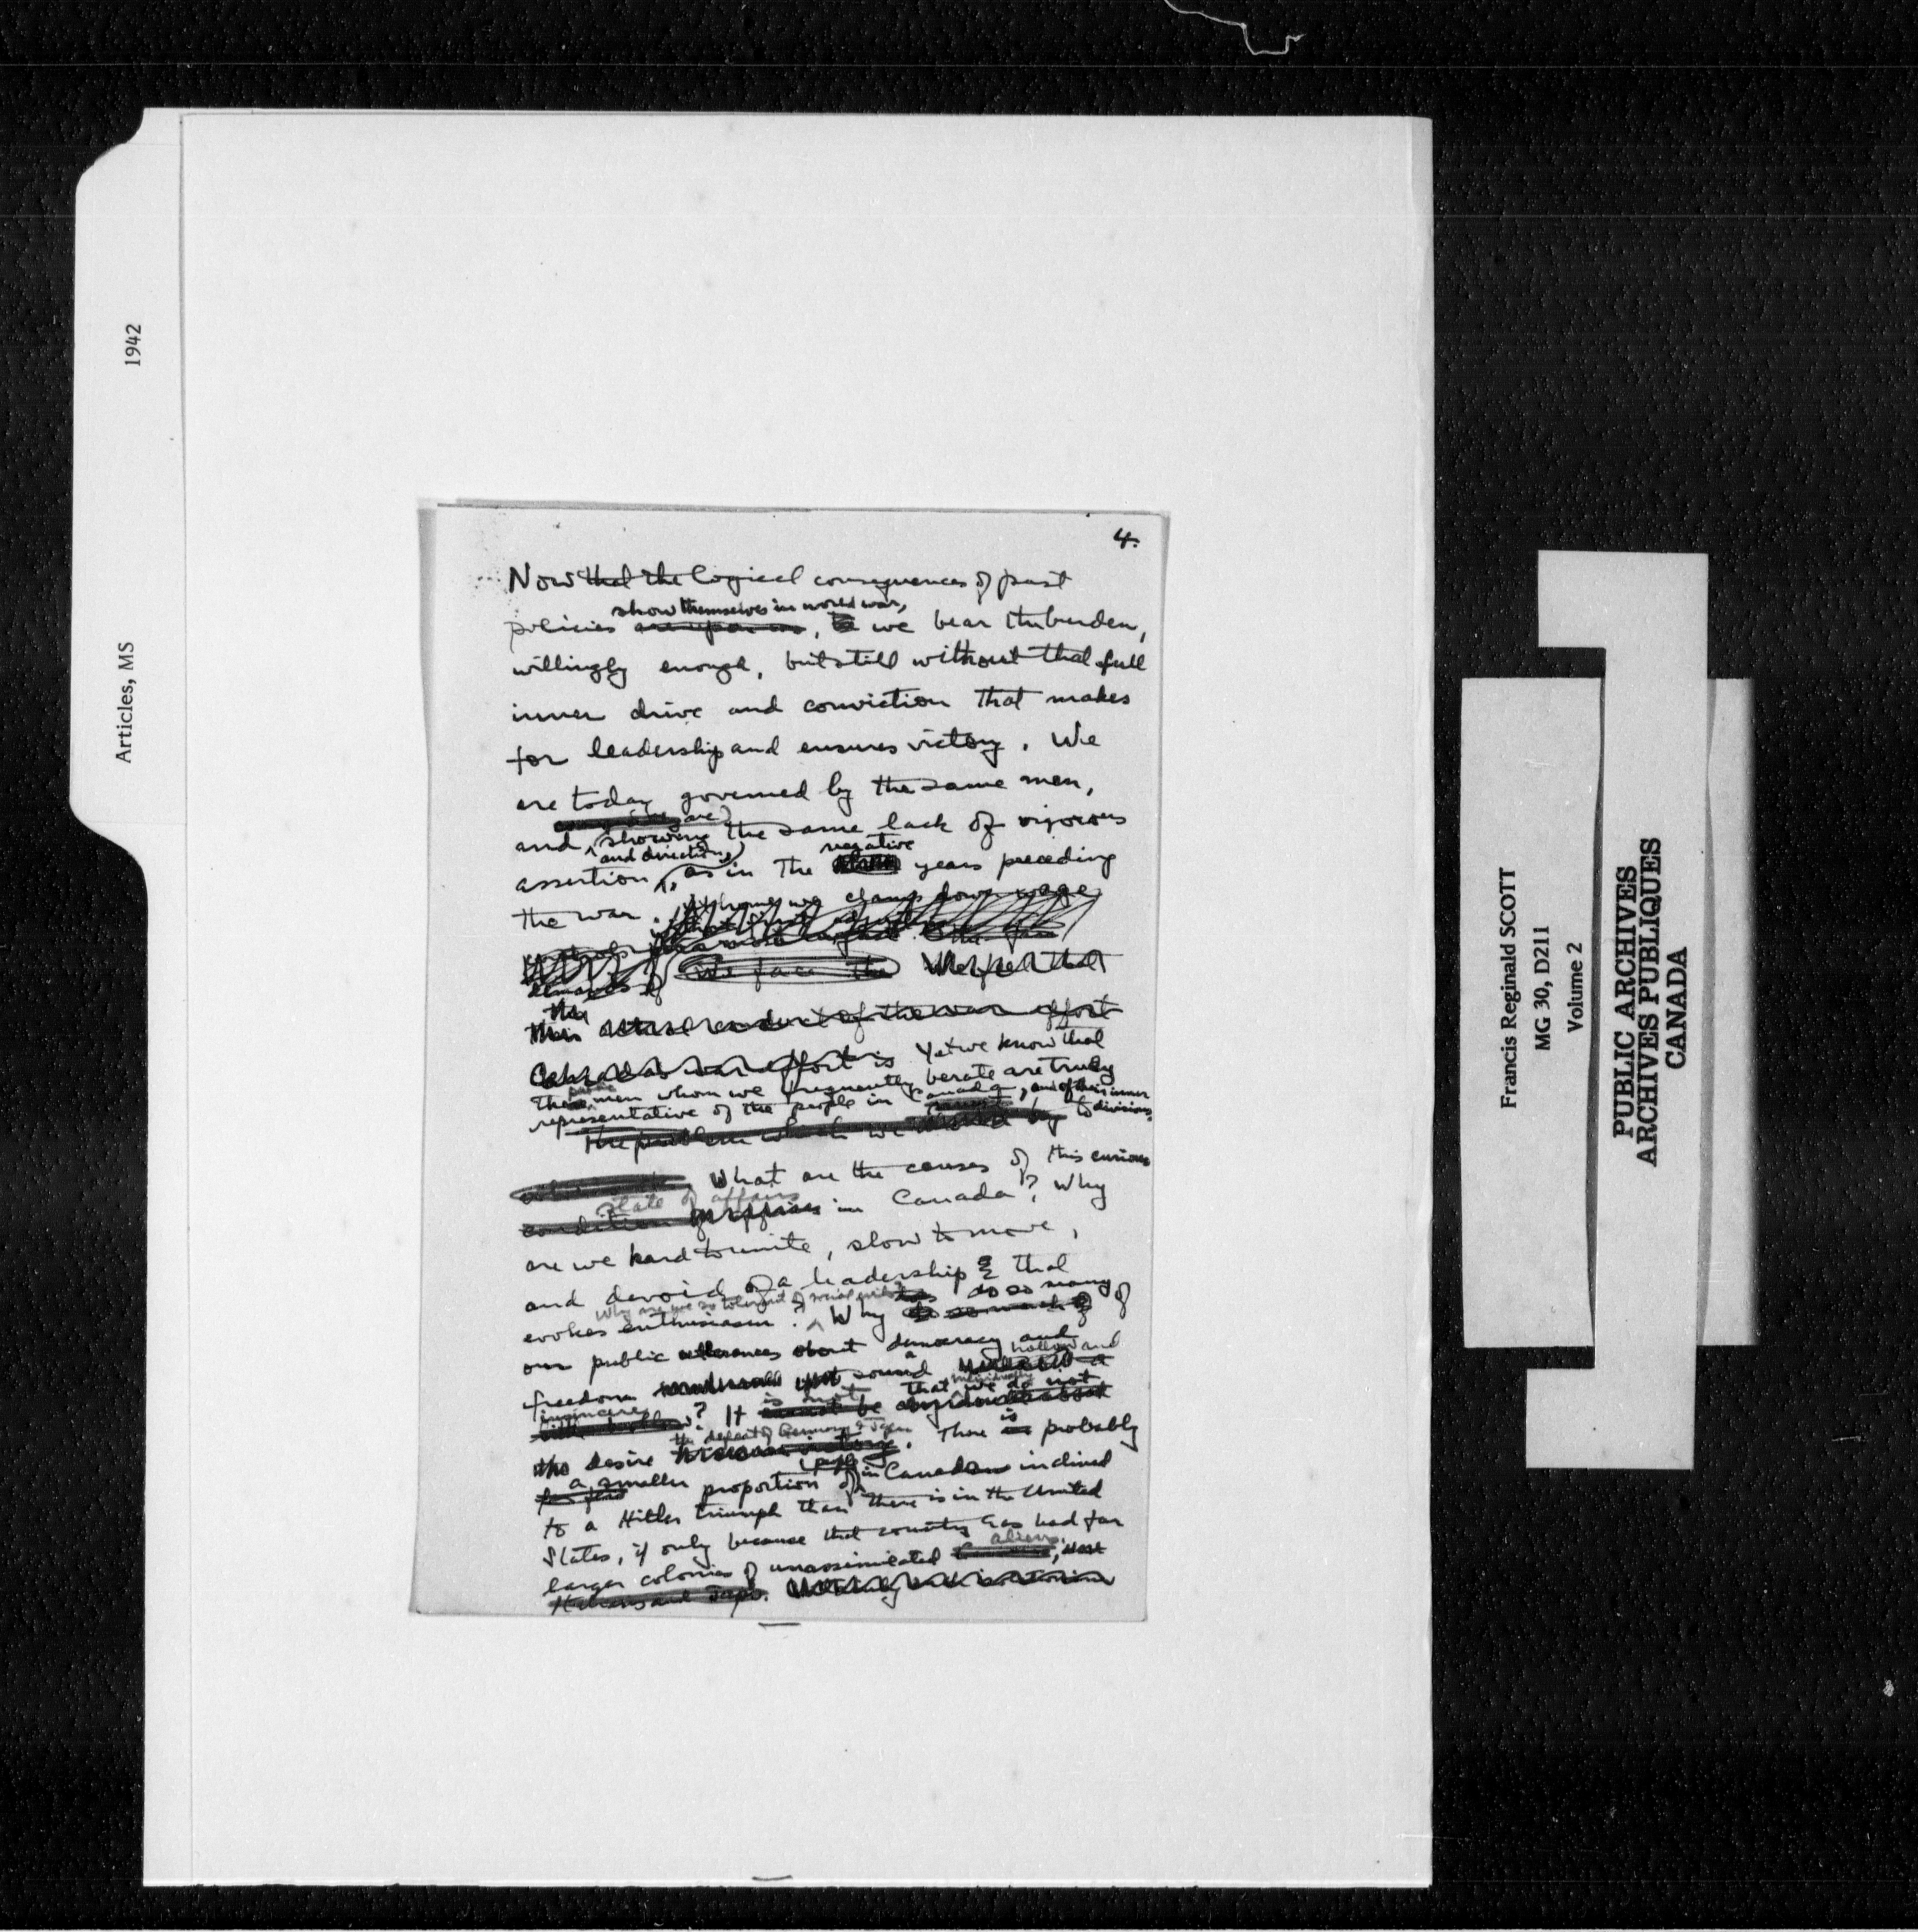 4.
Now that the logical consequences of past
show themselves in world war,
policies are upon us, we bear the burden,
willingly enough, but still without that full
inner drive and conviction that makes
for leadership and ensures victory. We
are today governed by the same men,
are
and showing the same lack of vigorous
and direction negative
assertion, as in the years preceding
the war. At home we clamp down wage
We face the
demands of
the
this actual conduct of the war effort
Canada's war effort is Yet we know that
these men whom we frequently berate are truly
representative of the people in Canada, and of their inner
divisions.
The problem which we by
What are the causes of this curious
state of affairs
condition in Canada? Why
are we hard to unite, slow to move,
and devoid of a leadership that
Why are we so tolerant of social evils do so many of
evokes enthusiasm? Why so much of
our public utterances about democracy and
hollow and
freedom sound a
insincere is not that individually we do not
? It
the defeat of Germany & Japan
desire. There is probably
people
a smaller proportion of in Canada inclined
to a Hitler triumph than there is in the United
States, if only because that country has had far
aliens.
larger colonies of unassimilated
Italians and Japs.
Articles, MS
1942
Francis Reginald SCOTT
MG 30, D211
Volume 2
PUBLIC ARCHIVES
ARCHIVES PUBLIQUES
CANADA